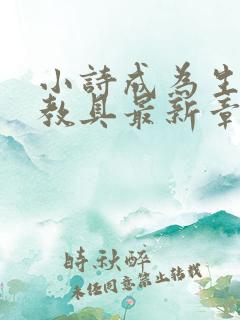 小詩成為生
教具最新章
時秋醉
未經同意禁止转载